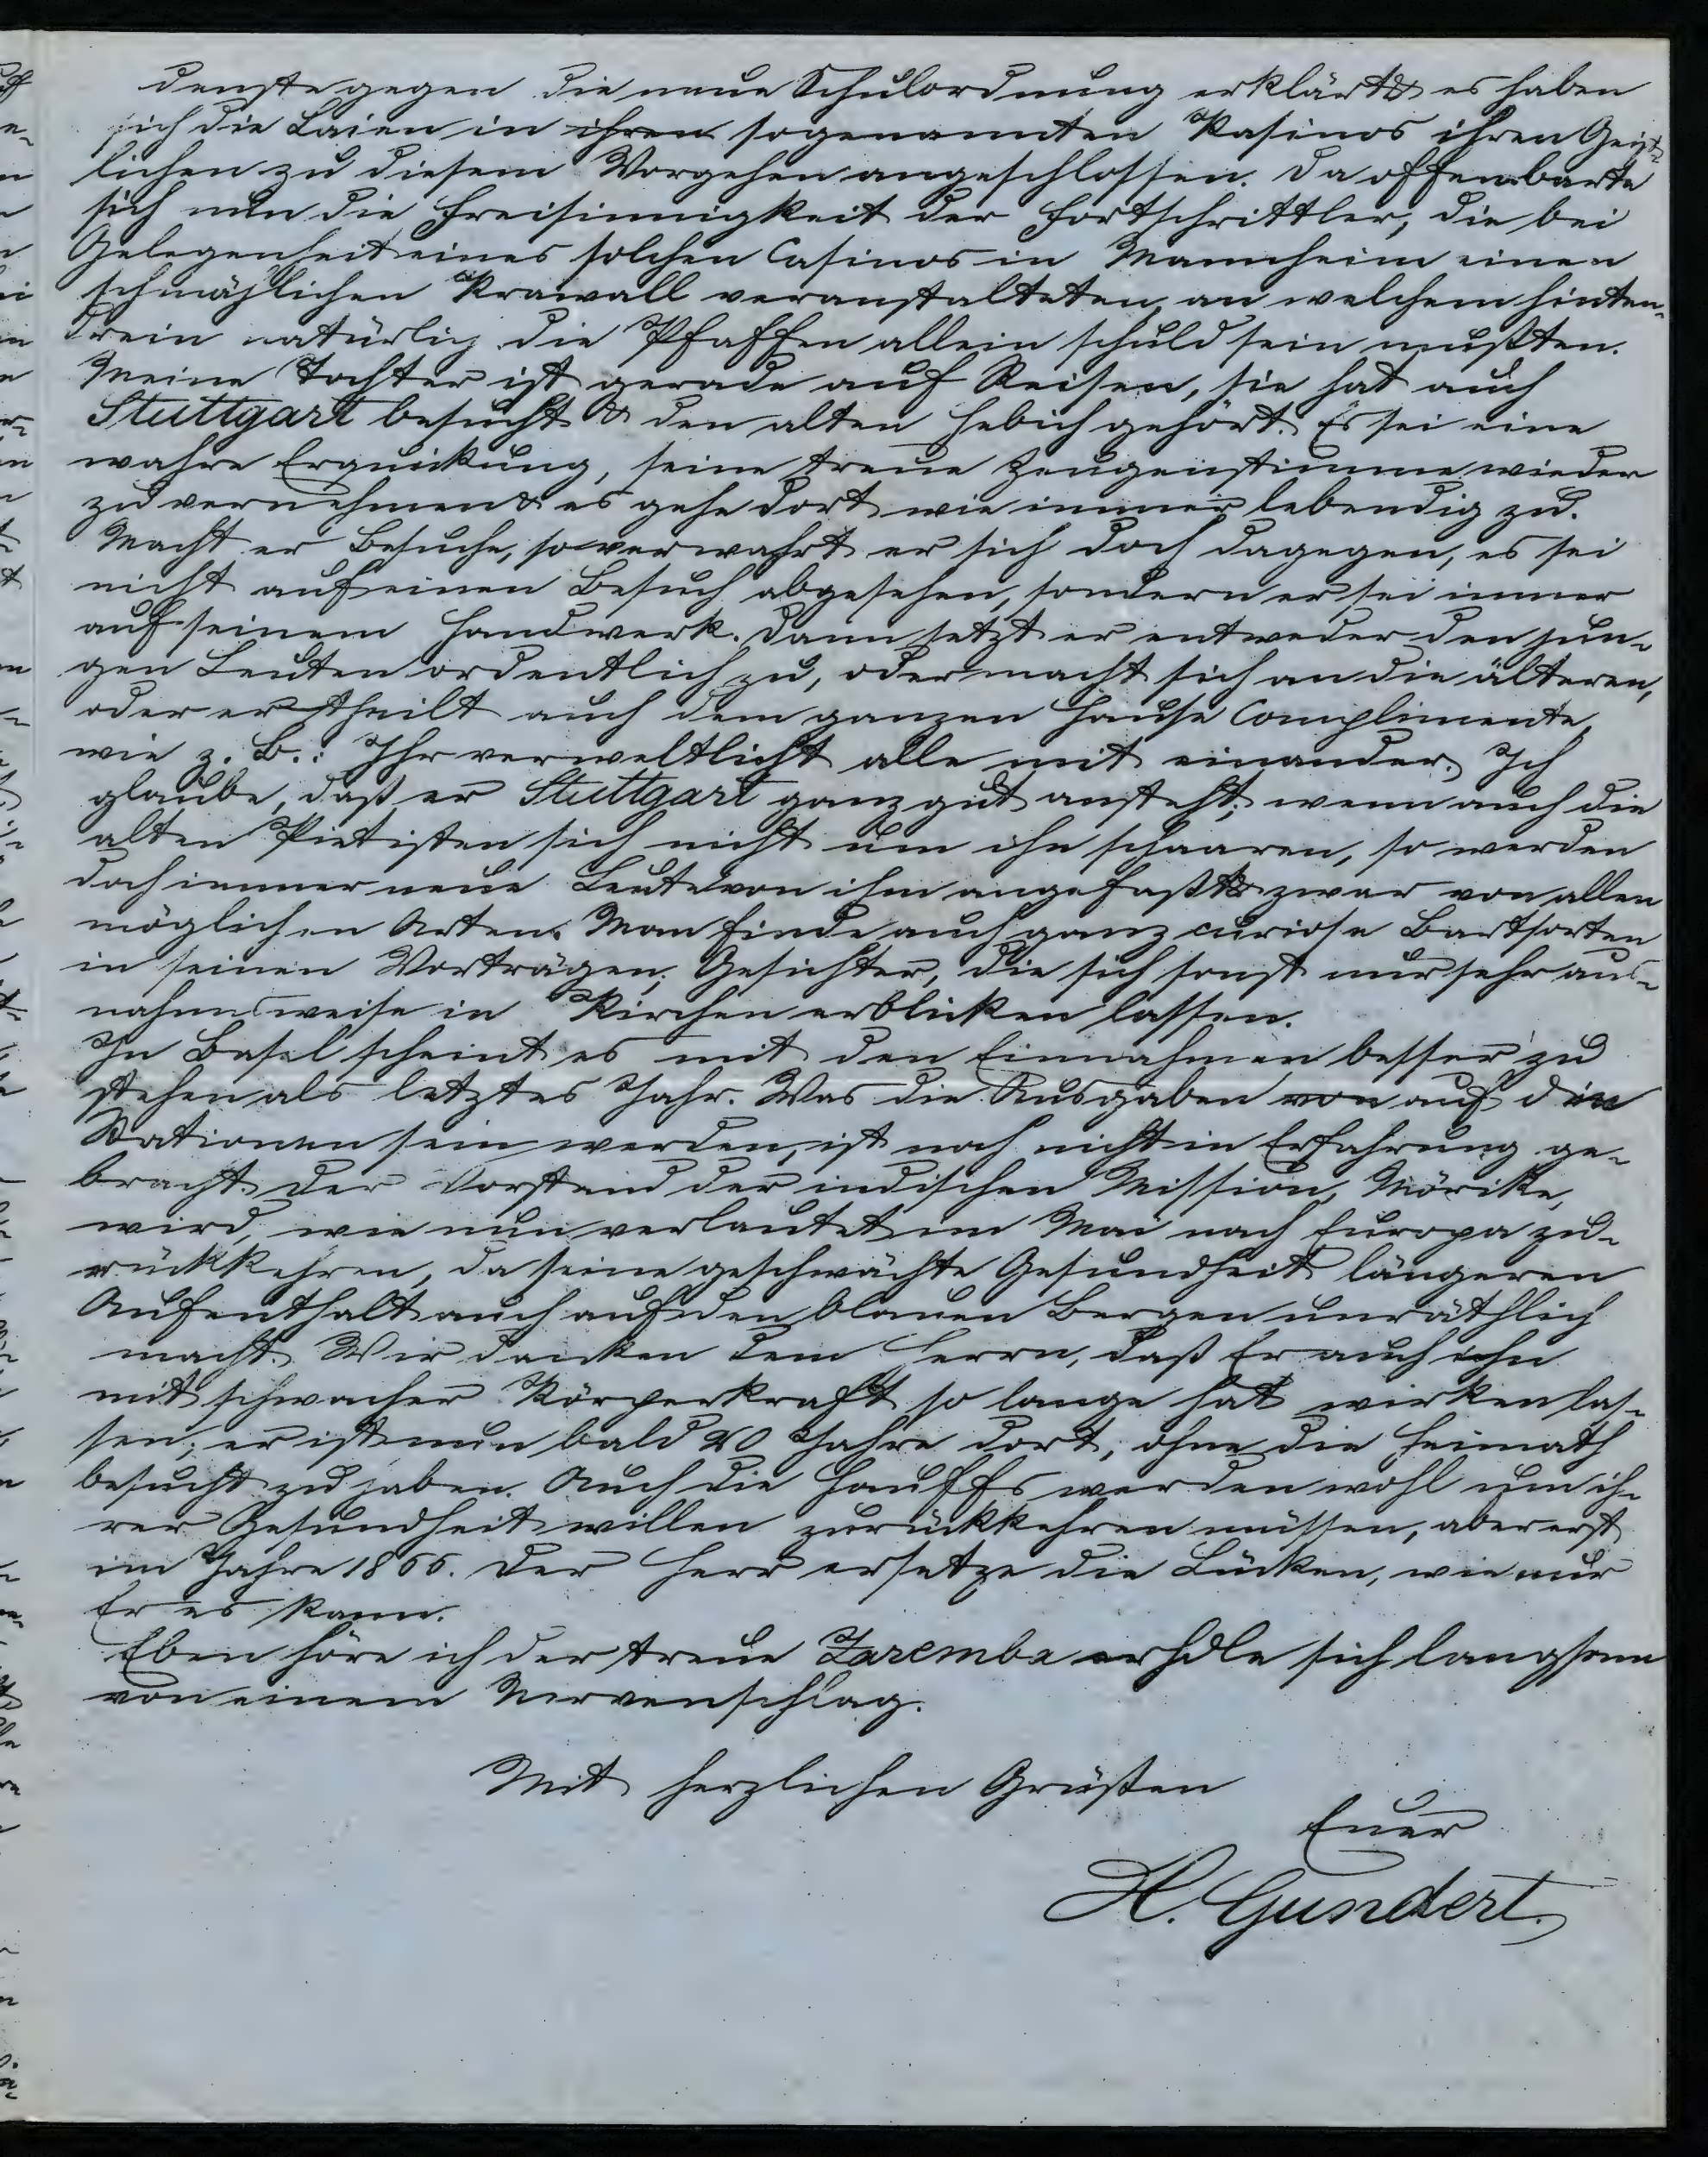 denste gegen die neue Schulordnung erklärt & es haben
sich die Laien in ihren sogenannten Kasinos ihren Geist-
lichen zu diesem Vorgehen angeschlossen. Da offenbarte
sich nun die Freisinnigkeit der Fortschrittler, die bei
Gelegenheit eines solchen Casinos in Mannheim einen
schmählichen Krawall veranstalteten, an welchem hinten-
drein natürlich die Pfaffen allein schuld sein mußten.
Meine Tochter ist gerade auf Reisen, sie hat auch
Stuttgart besucht & den alten Hebich gehört. Es sei eine
wahre Erquickung, seine treue Zeugenstimme wieder
zu vernehmen & es gehe dort wie immer lebendig zu.
Macht er Besuche, so verwahrt er sich doch dagegen, es sei
nicht auf einen Besuch abgesehen, sondern er sei immer
auf seinem Handwerk. Dann setzt er entweder den jun-
gen Leuten ordentlich zu, oder macht sich an die älteren,
oder ertheilt auch dem ganzen Hause Complimente,
wie z. B.: Ihr verweltlicht alle mit einander. Ich
glaube, daß er Stuttgart ganz gut ansteht; wenn auch die
alten Pietisten sich nicht um ihn schaaren, so werden
doch immer neue Leute von ihm angefaßt & zwar von allen
möglichen Arten. Man finde auch ganz curiose Bartsorten
in seinen Vorträgen, Gesichter, die sich sonst nur sehr aus-
nahmsweise in Kirchen erblicken lassen.
In Basel scheint es mit den Einnahmen besser zu
stehen als letztes Jahr. Was die Ausgaben von auf den
Stationen sein werden, ist noch nicht in Erfahrung ge-
bracht. Der Vorstand der indischen Mission, Mörike,
wird, wie nun verlautet im Mai nach Europa zu-
rückkehren, da seine geschwächte Gesundheit längeren
Aufenthalt auch auf den blauen Bergen unräthlich
macht. Wir danken dem Herrn, daß Er auch ihn
mit schwacher Körperkraft so lange hat wirken las-
sen; er ist nun bald 20 Jahre dort, ohne die Heimath
besucht zu haben. Auch die Hauffs werden wohl um ih-
rer Gesundheit willen zurückkehren müssen, aber erst
im Jahre 1866. Der Herr ersetze die Lücken, wie nur
Er es kann.
Eben höre ich der treue Zaremba erhole sich langsam
von einem Nervenschlag.
Mit herzlichen Grüßen
Euer
H. Gundert.